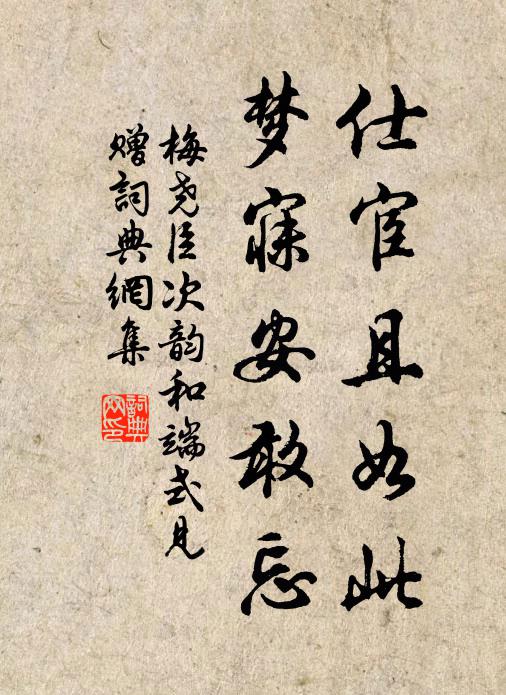 仕宦且如此
梦寐安敢忘
梅尧臣次韵和端式见
赠詞典網集
詞典网印